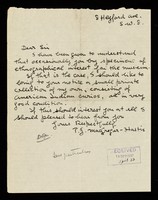 8 Heyford Ave.
S.W. 8.
Dear Sir
I have been given to understand
that occasionally you buy specimens of
ethnographical interest for the museum.
If that is the case, I should like to
bring to your notice a small private
collection of my own, consisting of
American Indian curios, all in very
good condition.
If this should interest you at all I
should be pleased to hear from you
Yours Respectfully
T.J.